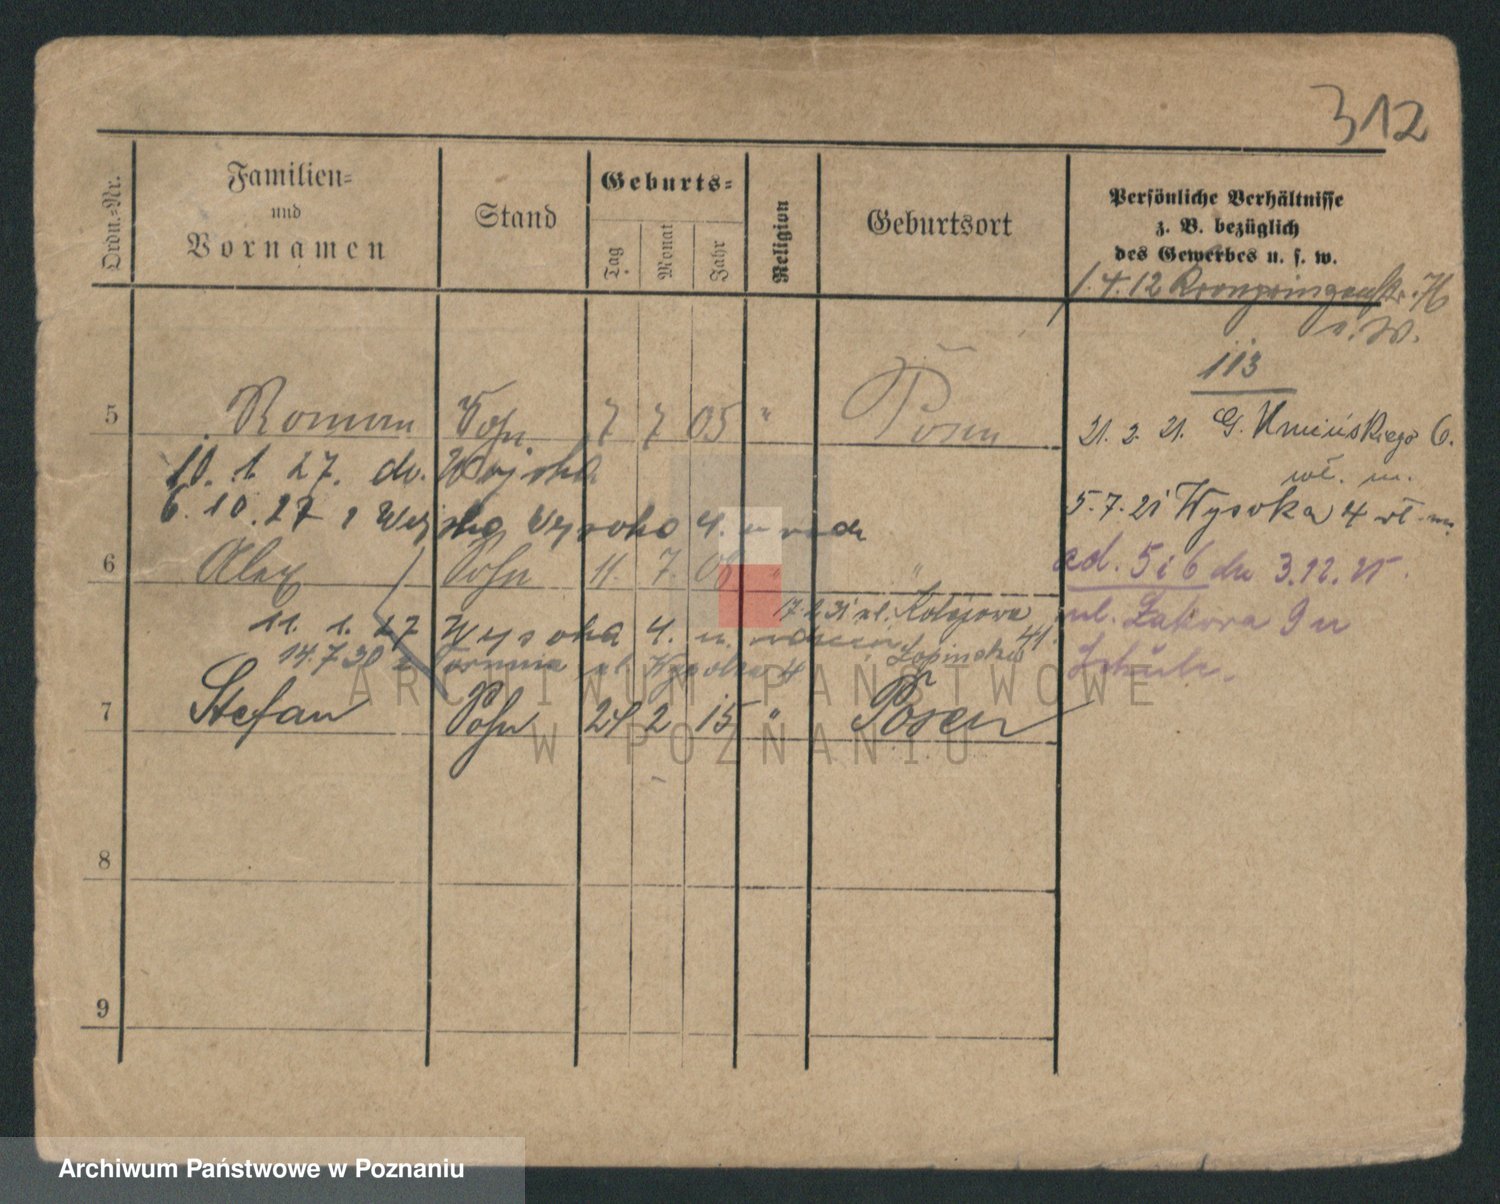 312
Ordn.-Nr.
Familien-
und
Vornamen
Stand
Geburts-
Tag
Monat
Jahr
Religion
Geburtsort
Persönliche Verhältnisse
z. B. bezüglich
des Gewerbes u. s. w.
1.4.12 Kronprinzenstr. 76
v. W.
113
5 Roman Sohn 7 7 05 " Posen
21. 2. 21. G. Umińskiego 6.
wł. m.
10. 1. 27. do Wojska
6. 10. 27 z Wojska Wysoka 4. u rodz
5.7.21 Wysoka 4 wł. m.
6 Alex Sohn 11. 7. 08 " "
ad. 5 i 6 dn 3.12.25.
17.2.31 ul. Kolejowa 41.
11. 1. 27 Wysoka 4. u
ul. Żakowa 9 u
14.7.30 z Torunia ul. Wysoka 4
7 Stefan Sohn 24 2 15 " Posen
8
9
ARCHIWUM PAŃSTWOWE
W POZNANIU
Archiwum Państwowe w Poznaniu